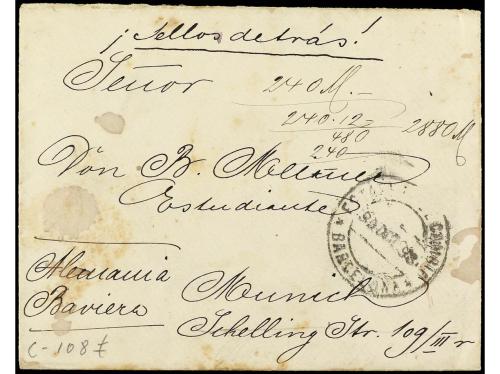 ¡Sellos detrás!
Señor
240 M. —
240.12
480
240
2880 M
Don B.
Estudiante
BARCELONA
Alemania
Baviera
Munich
Schelling Str. 109/III r
C-108